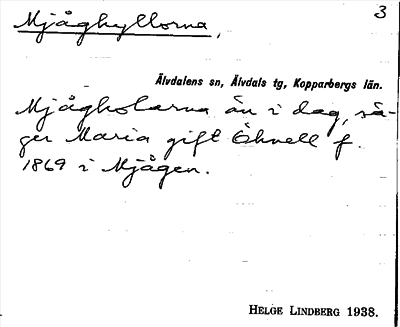 3
Mjåghyllorna,
Älvdalens sn, Älvdals tg, Kopparbergs län.
Mjågholarna än i dag, sä-
ger Maria gift Öhnell f.
1869 i Mjågen.
HELGE LINDBERG 1938.